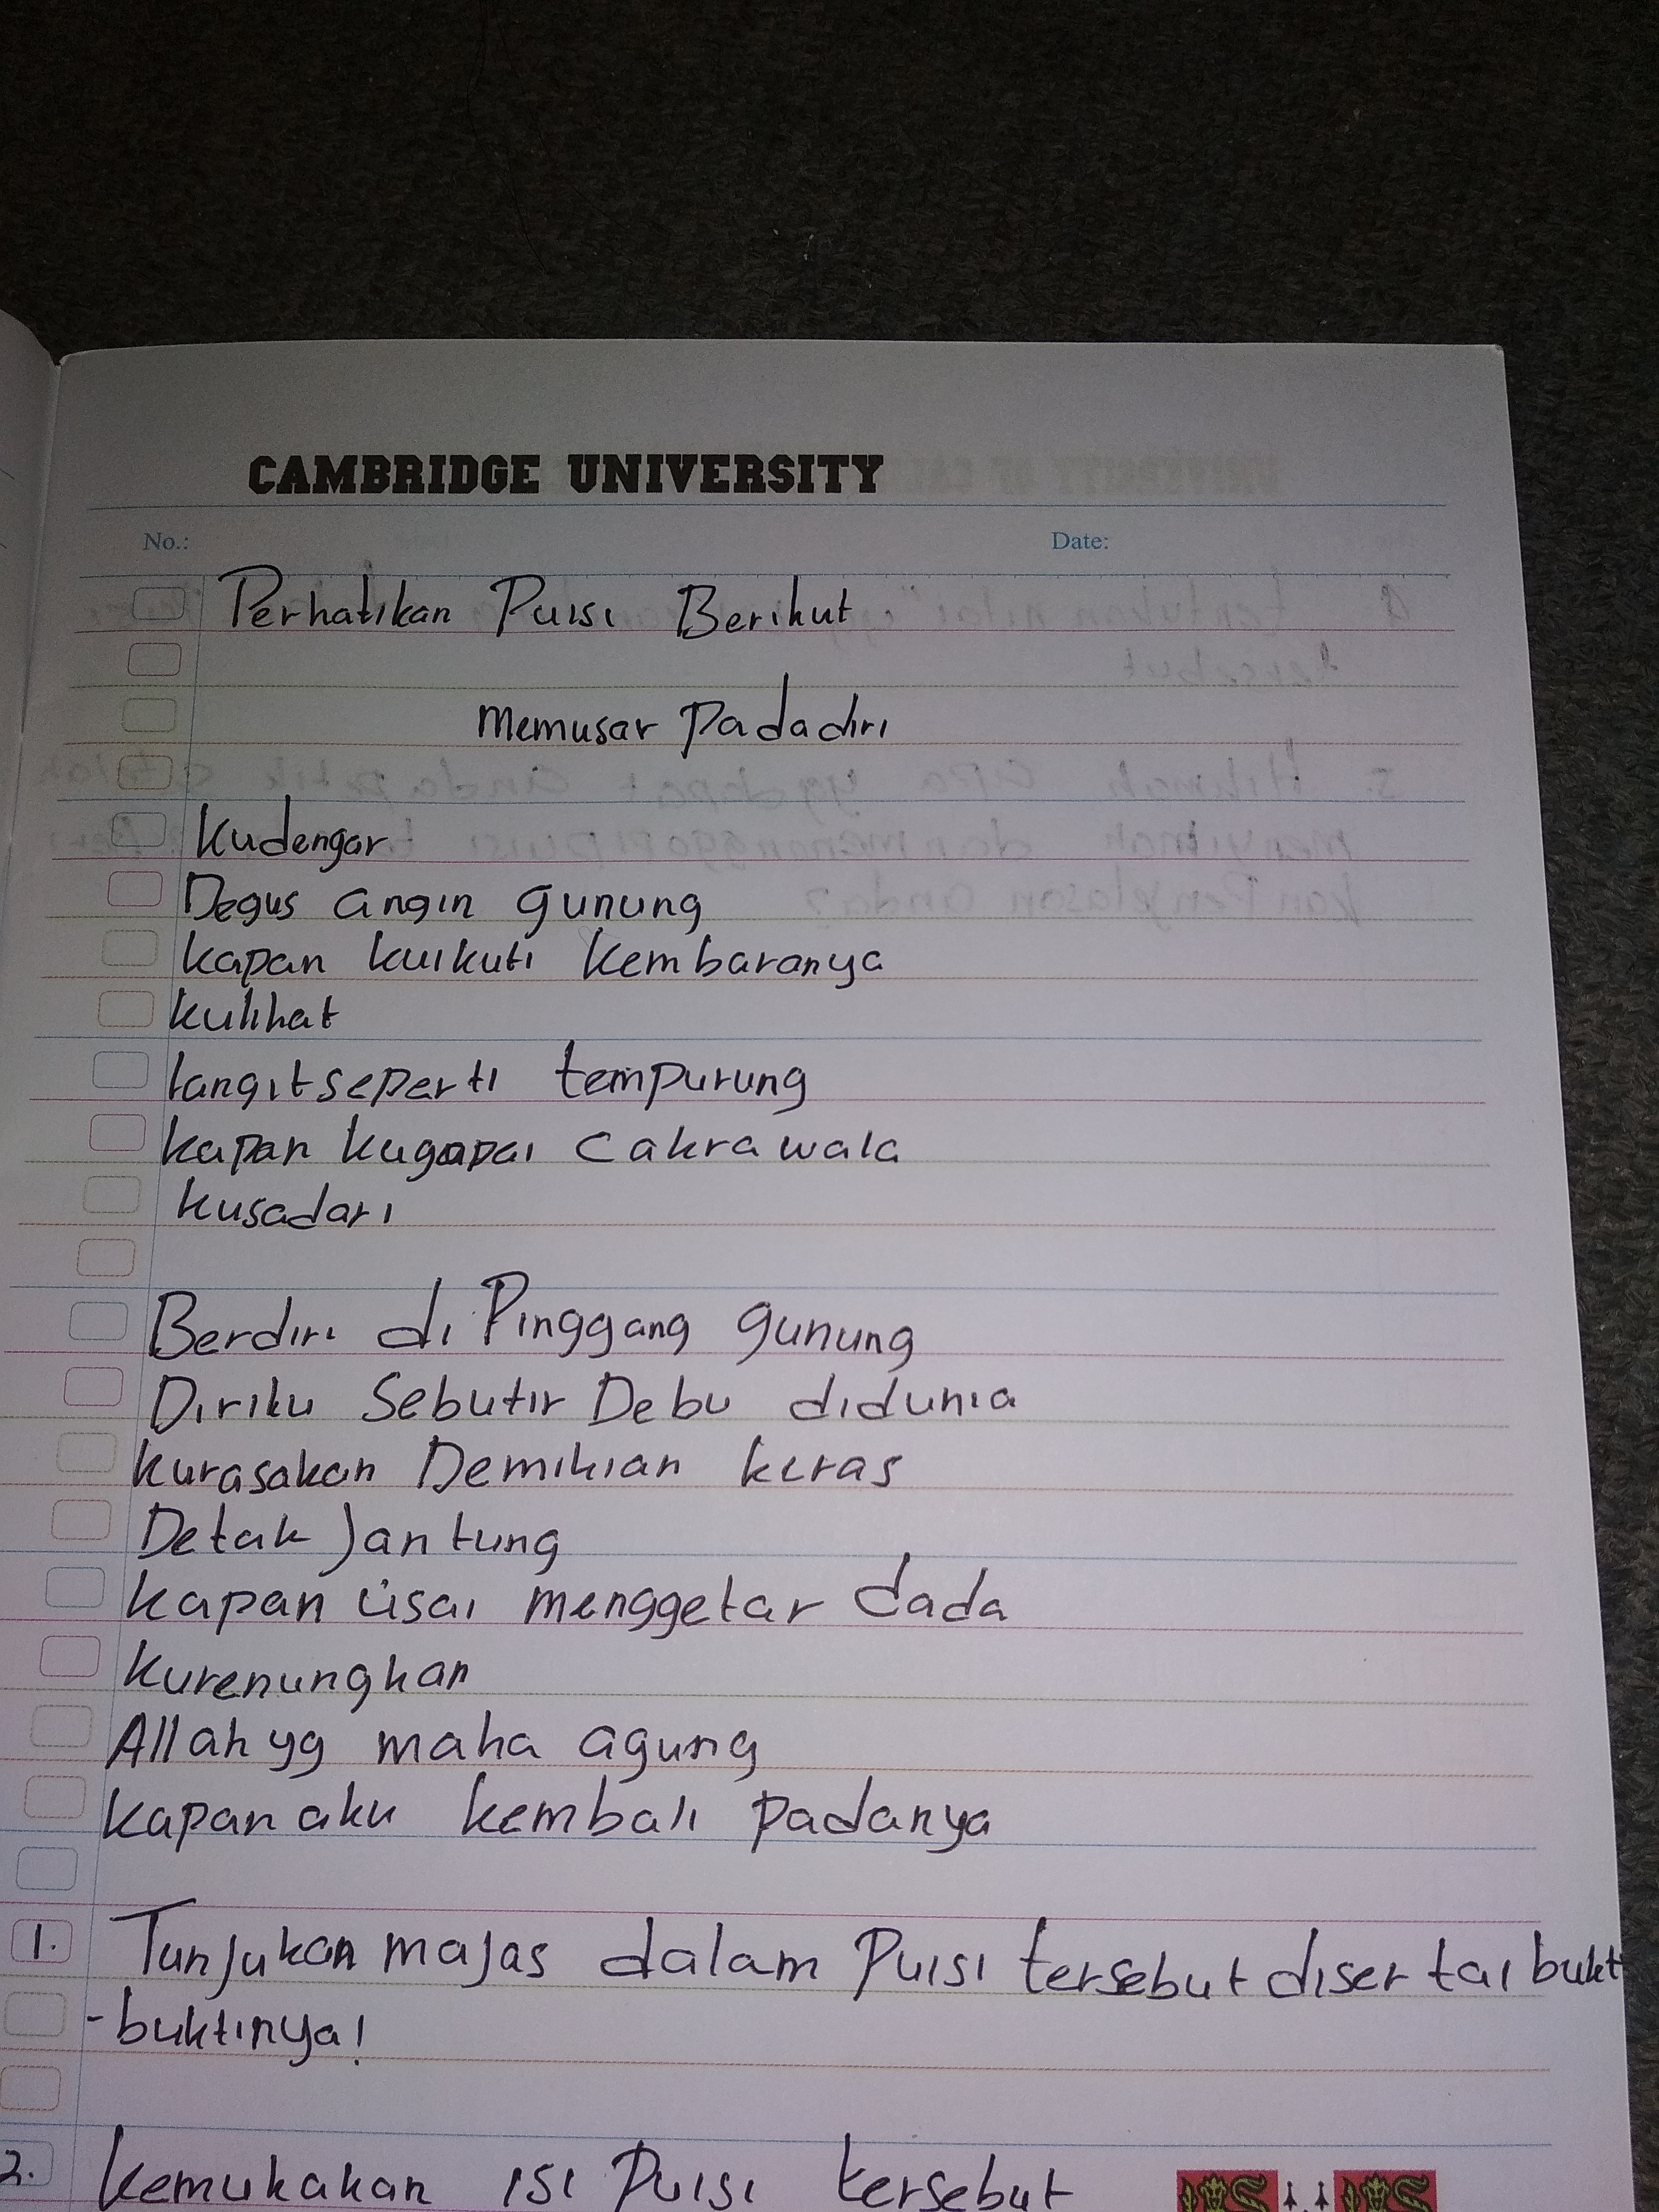 CAMBRIDGE UNIVERSITY
No.: Date:
Perhatikan Puisi Berikut
Memusar Padadiri
Kudengar
Degus angin gunung
kapan kuikuti kembaranya
kulihat
langit seperti tempurung
kapan kugapai Cakrawala
kusadari
Berdiri di Pinggang gunung
Diriku Sebutir Debu didunia
kurasakan Demikian keras
Detak Jantung
kapan usai menggetar dada
kurenungkan
Allah yg maha agung
kapan aku kembali padanya
1. Tunjukan majas dalam Puisi tersebut disertai bukti
-buktinya!
2. kemukakan isi Puisi tersebut